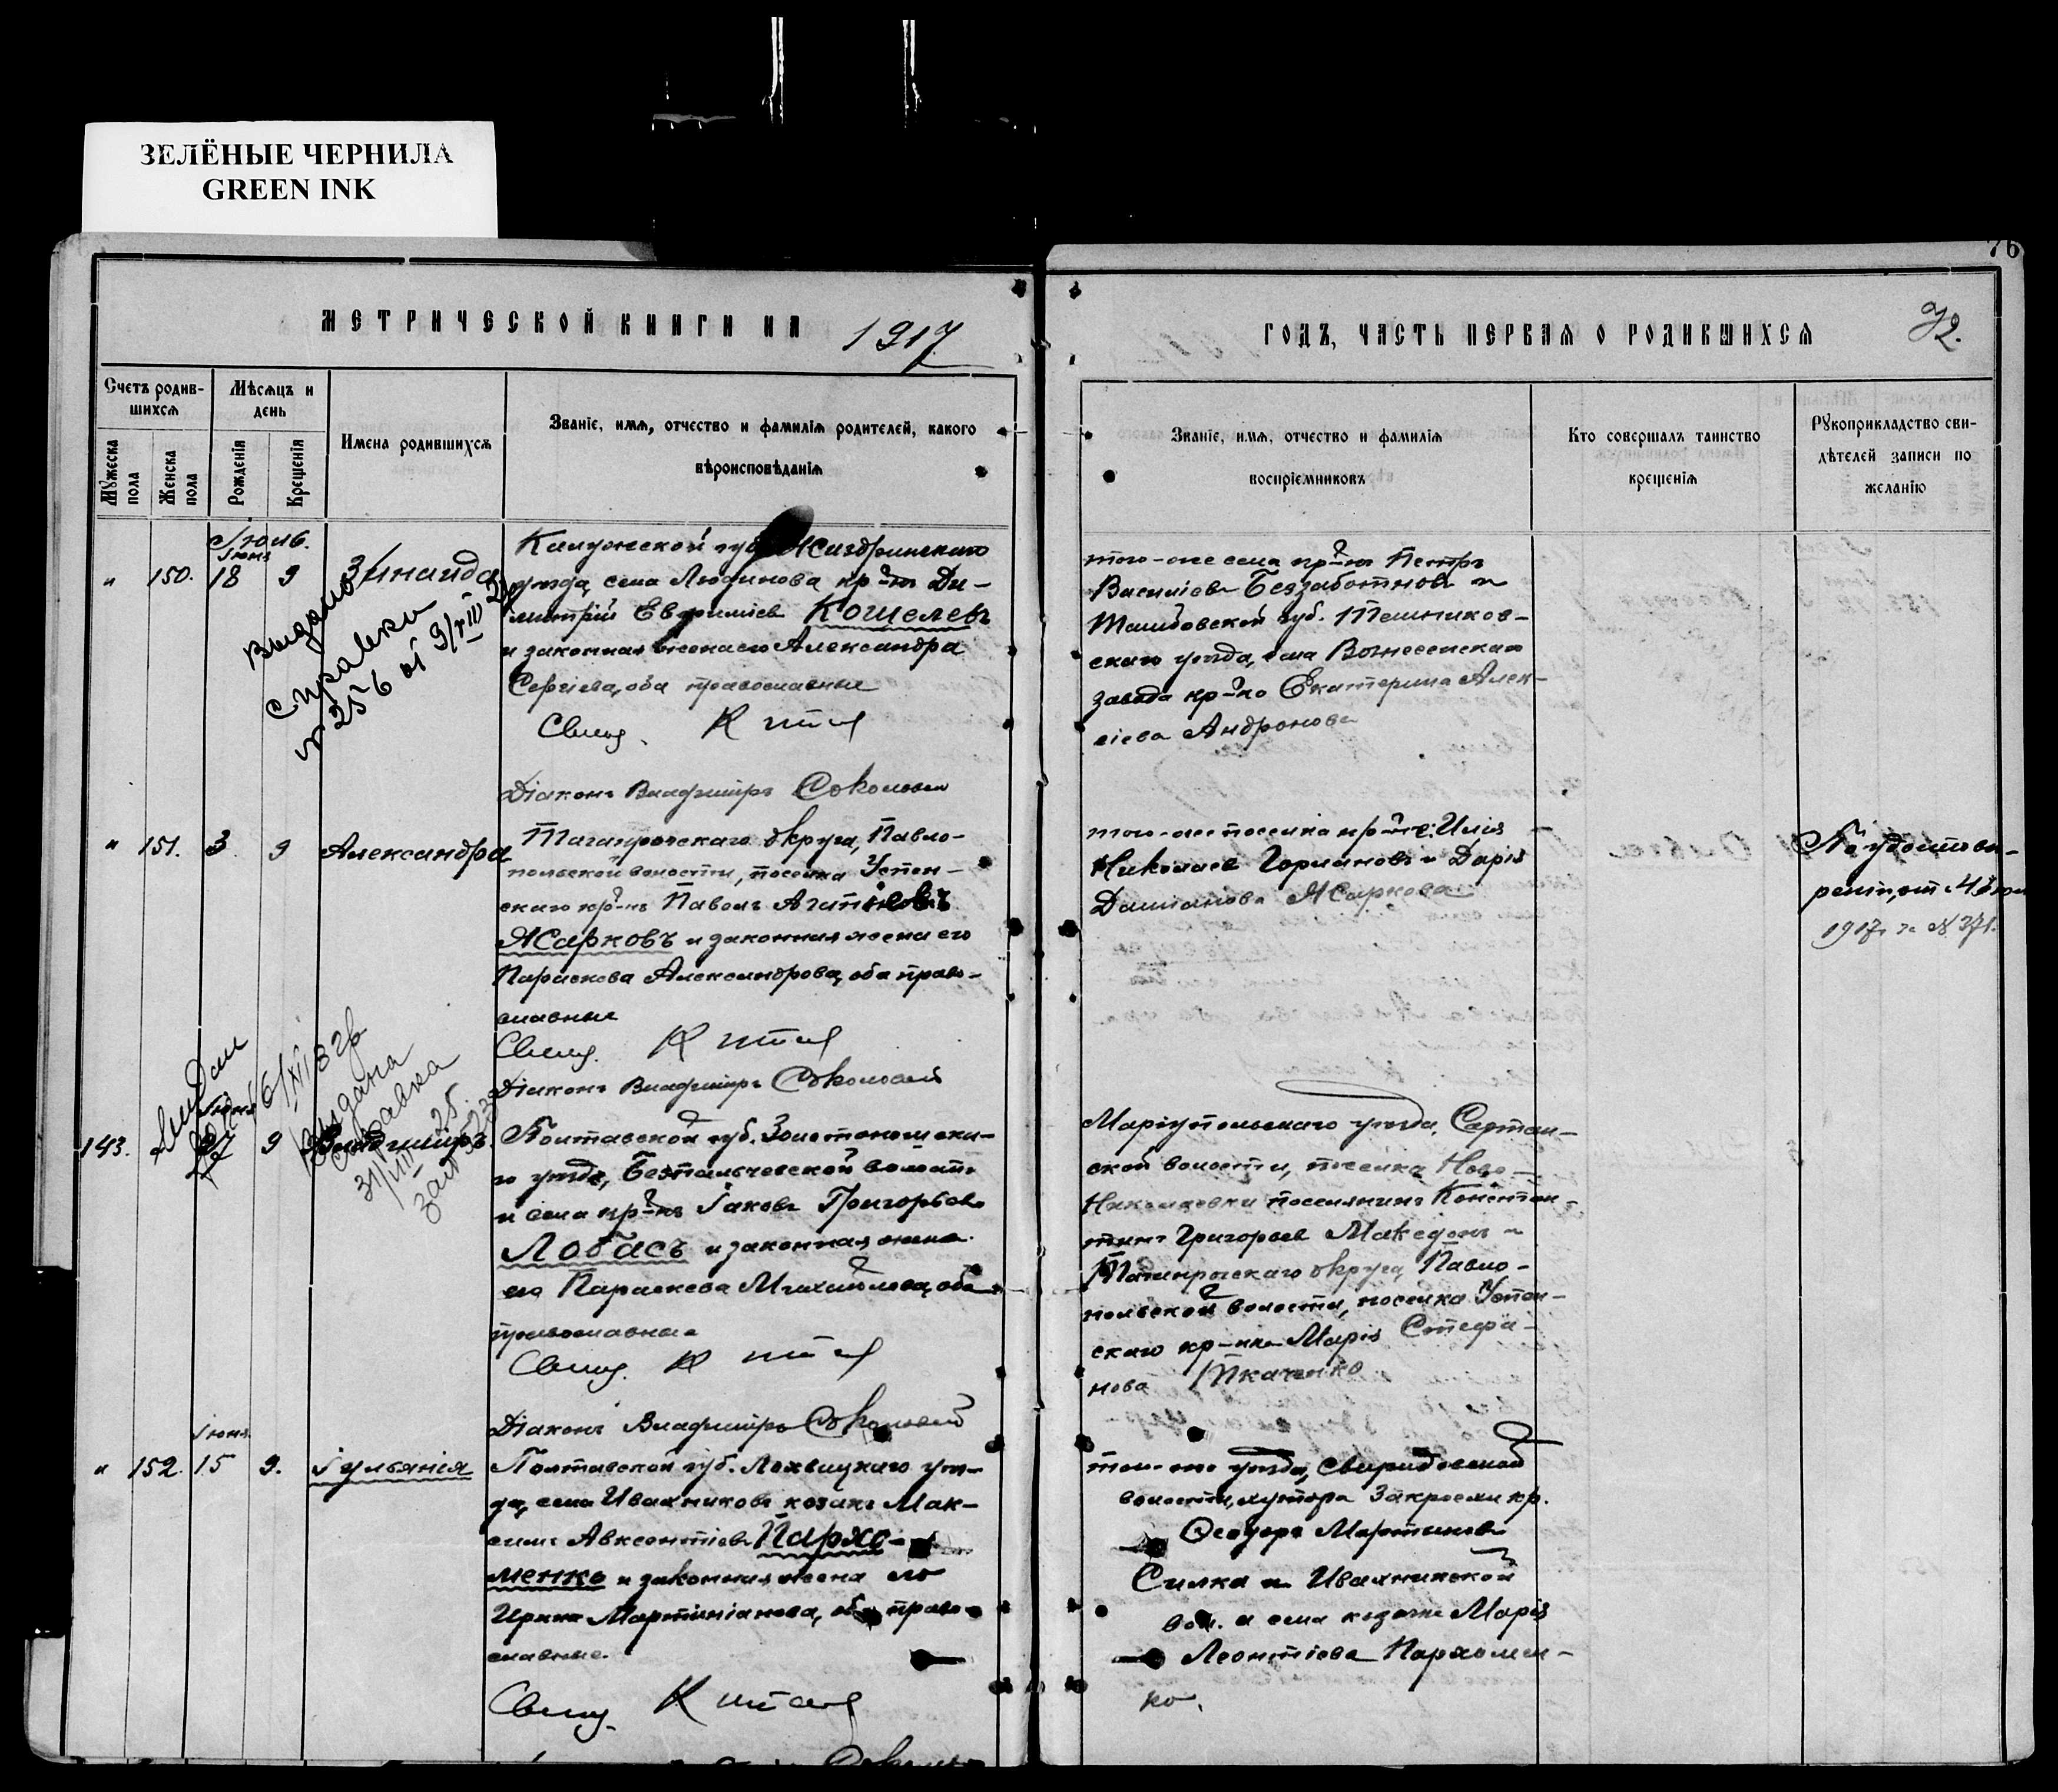 ЗЕЛЁНЫЕ ЧЕРНИЛА
GREEN INK
76
МЕТРИЧЕСКОЙ КНИГИ НА 1917
ГОДЪ, ЧАСТЬ ПЕРВАЯ О РОДИВШИХСЯ
72.
Счетъ родив-
шихся
Мѣсяцъ и
день
Мужеска
пола
Женска
пола
Рожденія
Крещенія
Имена родившихся
Званіе, имя, отчество и фамилія родителей, какого
вѣроисповѣданія
Званіе, имя, отчество и фамилія
воспріемниковъ
Кто совершалъ таинство
крещенія
Рукоприкладство сви-
дѣтелей записи по
желанію
Іюль.
Іюня
" 150. 18 9 Зинаида
Калужской губ. Жиздринскаго
уѣзда, села Людинова кр-нъ Ди-
митрій Евфиміев Кошелевъ
и законная жена его Александра
Сергіева, оба православные
Свящ.
Діаконъ Владиміръ Соколовъ
того-же села кр-нъ Петръ
Василіевъ Беззаботновъ и
Тамбовской губ. Темников-
скаго уѣзда, села Вознесенскаго
завода кр-ка Екатерина Алек-
сіева Андронова
Выдано
справки
№ 256 от 9/VIII
" 151. 3. 9 Александра
Таганрогскаго округа, Павло-
польской волости, поселка Успен-
скаго кр-нъ Павелъ
Жарковъ и законная жена его
Параскева Александрова, оба право-
славные
Свящ.
Діаконъ Владиміръ Соколовъ
того-же поселка кр-не: Илія
Николаев Гормановъ и Дарія
Даміанова Жаркова
По удостовѣ-
рен., от 4 Іюл
1917 г. за № 371.
Выдана
справка
31/VIII 25.
143. Іюня
27 9 Владиміръ.
Полтавской губ. Золотоношска-
го уѣзда, Безпальчевской волости
и села кр-нъ Іаковъ Григорьевъ
Лобасъ и законная жена
его Параскева Михайлова, оба
православные
Свящ.
Діаконъ Владиміръ Соколовъ
Маріупольскаго уѣзда, Сартан-
ской волости, поселка Ново-
Николаевки поселянинъ Констан-
тинъ Григорьев Македонъ и
Таганрогскаго округа Павло-
польской волости, поселка Успен-
скаго кр-нка Марія Стефа-
нова Ткаченко
Іюня
" 152. 15 9. Іуліанія
Полтавской губ. Лохвицкаго уѣз-
да, села Ивахниковъ козакъ Мак-
симъ Авксентіевъ Пархо-
менко и законная жена его
Ирина Мартиніанова, оба право-
славные.
Свящ.
того-же уѣзда, Свиридовской
волости, хутора кр.
Ѳеодоръ Мартиновъ
Силка и Ивахниковской
вол. и села козачка Марія
Леонтіева Пархомен-
ко.